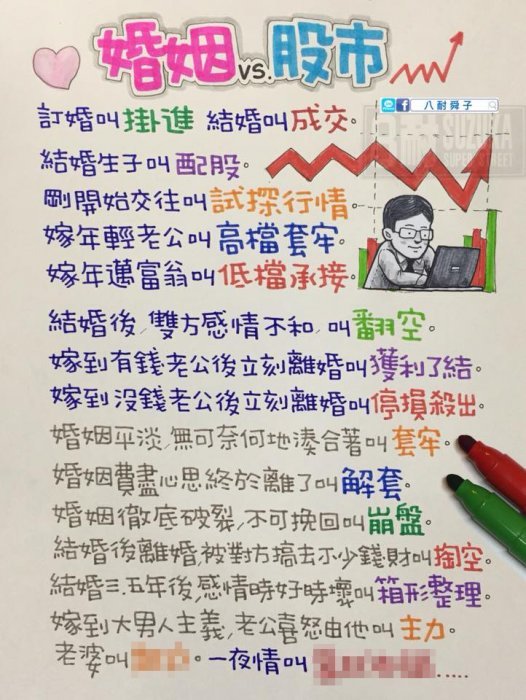 婚姻vs.股市
八耐舜子
訂婚叫掛進 結婚叫成交。
八耐 SUZUKA
SUPER STREET
結婚生子叫配股。
剛開始交往叫試探行情。
嫁年輕老公叫高檔套牢。
嫁年邁富翁叫低檔承接。
結婚後,雙方感情不和,叫翻空。
嫁到有錢老公後立刻離婚叫獲利了結。
嫁到沒錢老公後立刻離婚叫停損殺出。
婚姻平淡,無可奈何地湊合著叫套牢。
婚姻費盡心思終於離了叫解套。
婚姻徹底破裂,不可挽回叫崩盤。
結婚後離婚,被對方搞去不少錢財叫掏空。
結婚三.五年後,感情時好時壞叫箱形整理。
嫁到大男人主義,老公喜怒由他叫主力。
老婆叫 。一夜情叫 .....